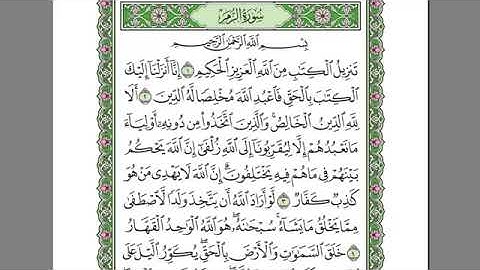 سُورَةُ الزُّمَرِ
بِسْمِ اللَّهِ الرَّحْمَٰنِ الرَّحِيمِ
تَنزِيلُ الْكِتَابِ مِنَ اللَّهِ الْعَزِيزِ الْحَكِيمِ ١ إِنَّا أَنزَلْنَا إِلَيْكَ
الْكِتَابَ بِالْحَقِّ فَاعْبُدِ اللَّهَ مُخْلِصًا لَّهُ الدِّينَ ٢ أَلَا
لِلَّهِ الدِّينُ الْخَالِصُ ۚ وَالَّذِينَ اتَّخَذُوا مِن دُونِهِ أَوْلِيَاءَ
مَا نَعْبُدُهُمْ إِلَّا لِيُقَرِّبُونَا إِلَى اللَّهِ زُلْفَىٰ إِنَّ اللَّهَ يَحْكُمُ
بَيْنَهُمْ فِي مَا هُمْ فِيهِ يَخْتَلِفُونَ ۗ إِنَّ اللَّهَ لَا يَهْدِي مَنْ هُوَ
كَاذِبٌ كَفَّارٌ ٣ لَّوْ أَرَادَ اللَّهُ أَن يَتَّخِذَ وَلَدًا لَّاصْطَفَىٰ
مِمَّا يَخْلُقُ مَا يَشَاءُ ۚ سُبْحَانَهُ ۖ هُوَ اللَّهُ الْوَاحِدُ الْقَهَّارُ
٤ خَلَقَ السَّمَاوَاتِ وَالْأَرْضَ بِالْحَقِّ ۖ يُكَوِّرُ اللَّيْلَ عَلَى